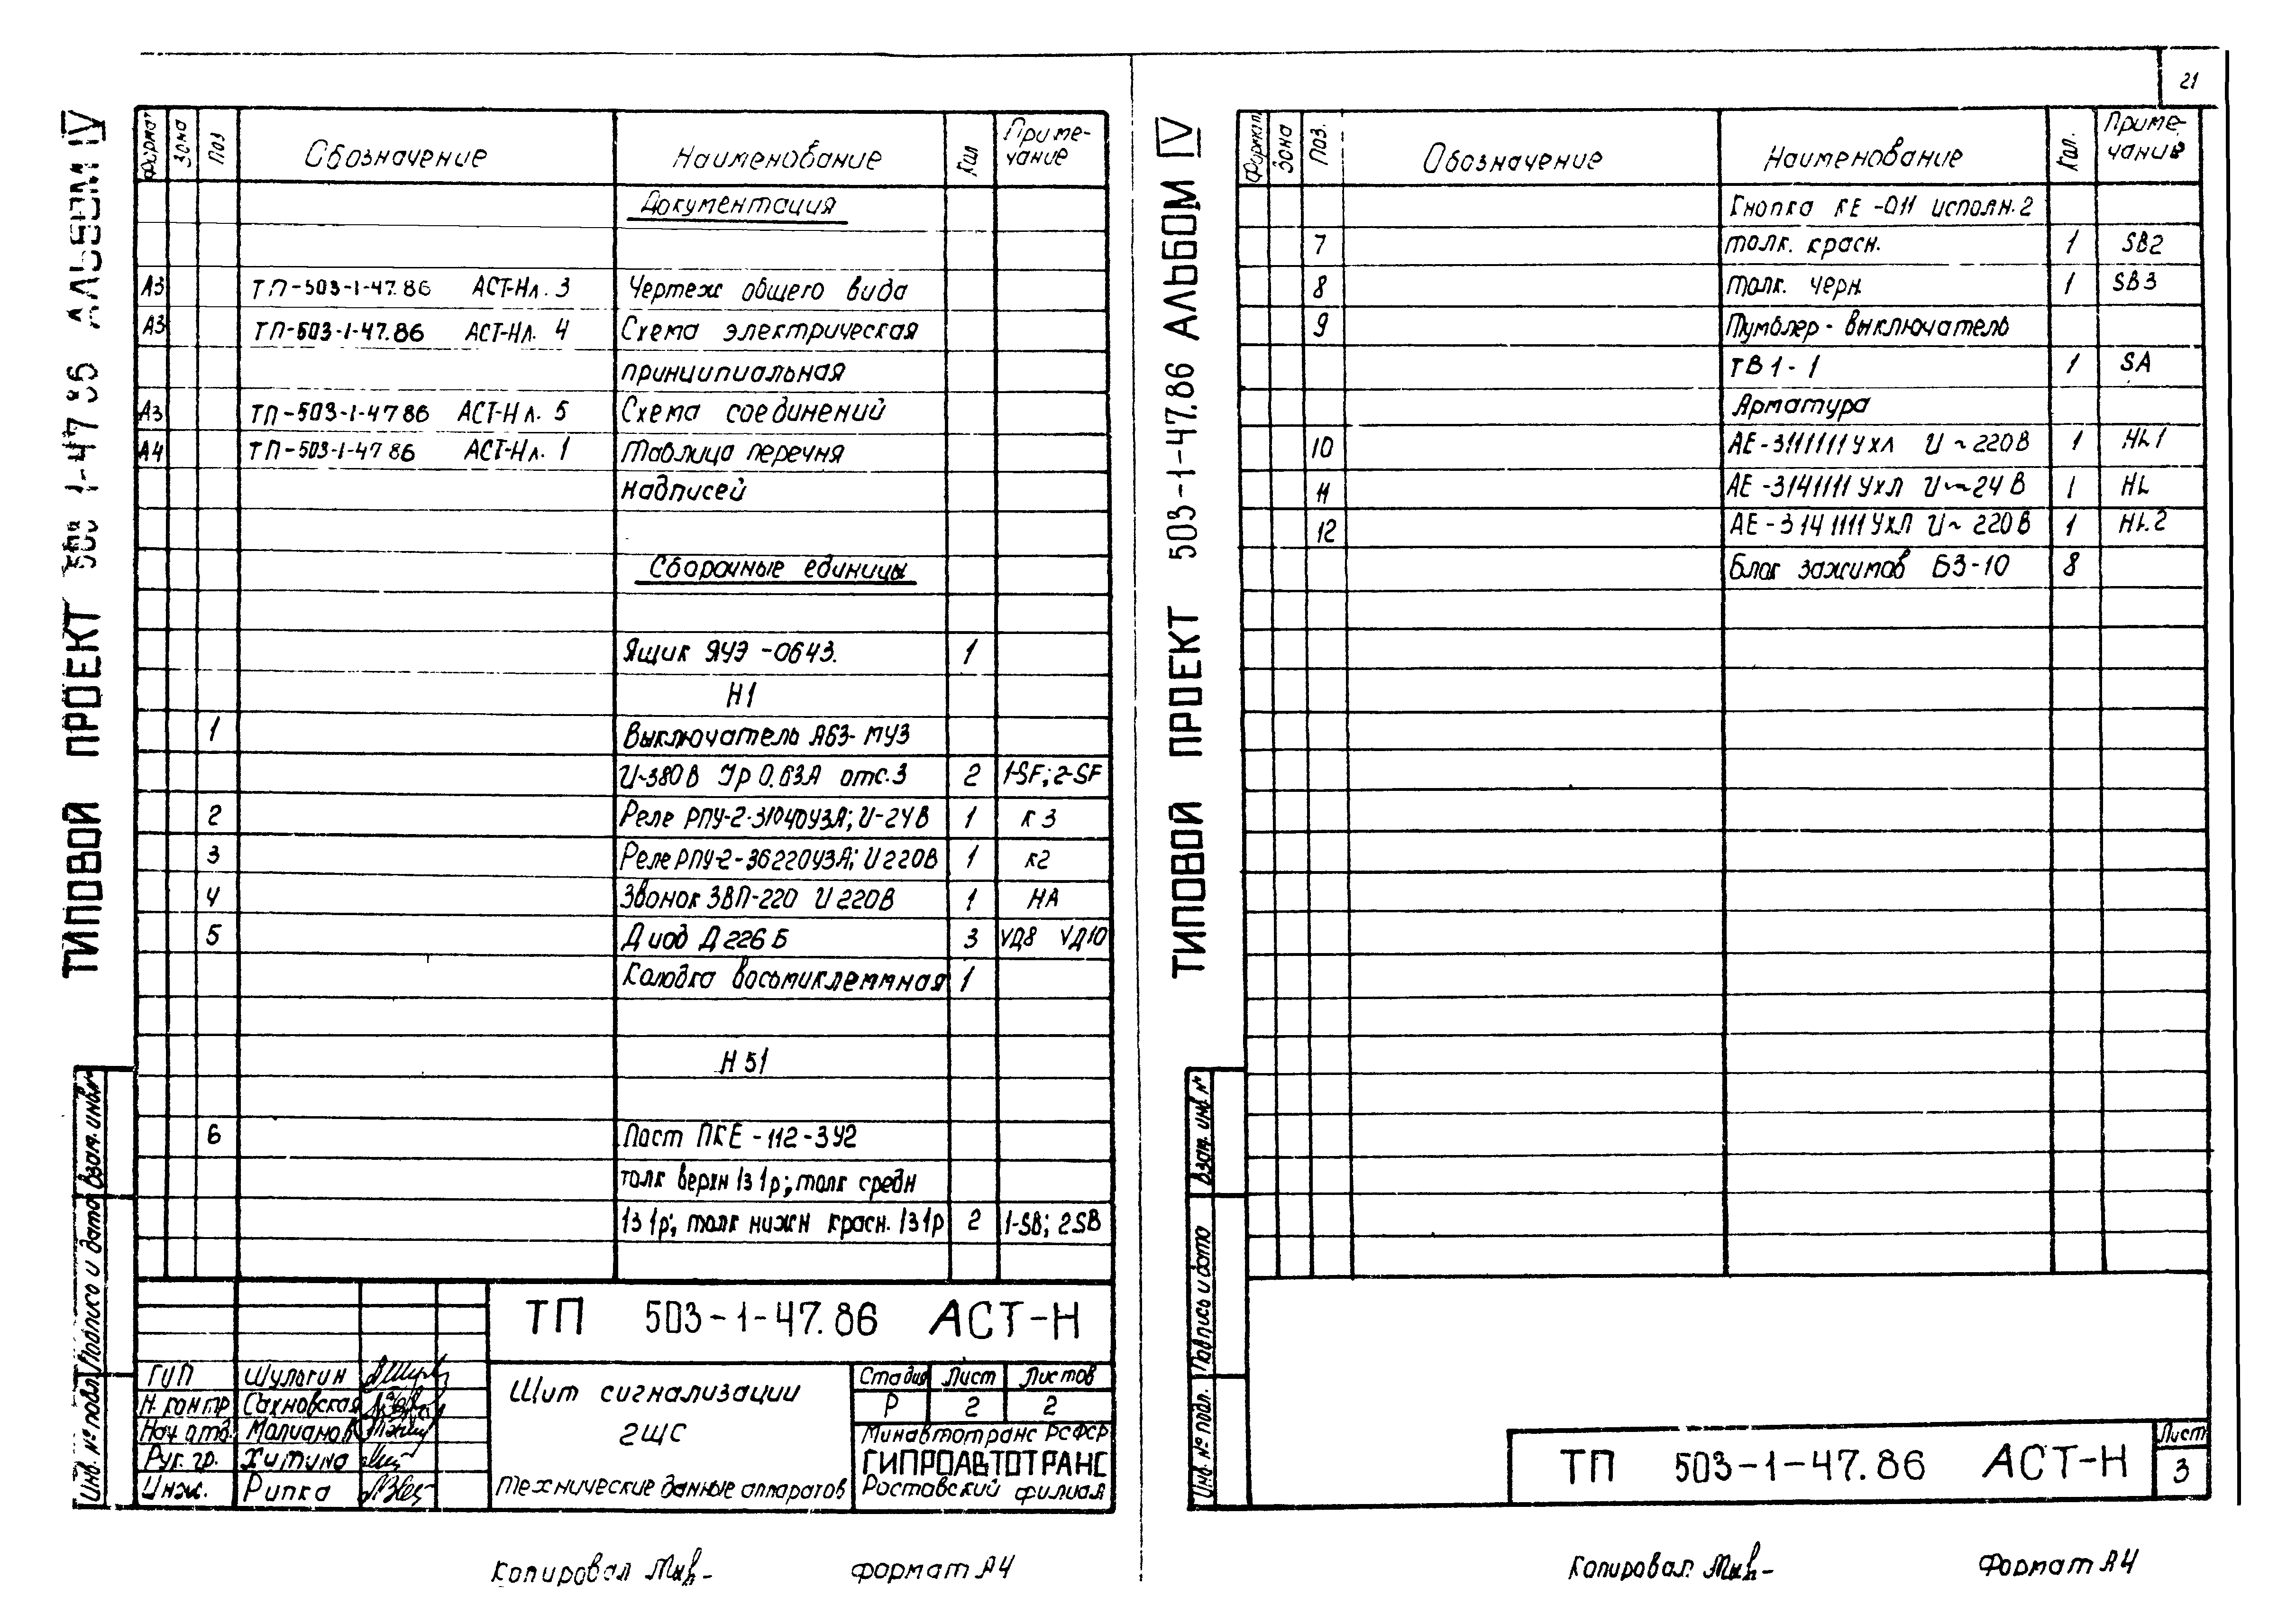 21
ТИПОВОЙ ПРОЕКТ 503 1-47 86 АЛЬБОМ IV
Формат Зона Поз Обозначение Наименование Кол Приме-
чание
Документация
А3 ТП-503-1-47.86 АСТ-Н л. 3 Чертеж общего вида
А3 ТП-503-1-47.86 АСТ-Н л. 4 Схема электрическая
принципиальная
А3 ТП-503-1-47 86 АСТ-Н л. 5 Схема соединений
А4 ТП-503-1-47 86 АСТ-Н л. 1 Таблица перечня
надписей
Сборочные единицы
Ящик ЯУЭ-0643. 1
Н1
1 Выключатель А63-МУ3
U~380В Iр 0.63А отс.3 2 1-SF; 2-SF
2 Реле РПУ-2-31040У3А; U-24В 1 К3
3 Реле РПУ-2-36220У3А; U 220В 1 К2
4 Звонок ЗВП-220 U 220В 1 НА
5 Диод Д226Б 3 VД8 VД10
Колодка восьмиклеммная 1
Н51
6 Пост ПКЕ-112-3У2
толк верхн 1з1р; толк средн
1з1р; толк нижн красн. 1з1р 2 1-SB; 2SB
ТП 503-1-47.86 АСТ-Н
ГИП Шулогин
Н. контр Сахновская
Нач отд. Молчанов
Рук. гр. Хитина
Инж. Рипка
Щит сигнализации
2ЩС
Технические данные аппаратов
Стадия Лист Листов
Р 2 2
Минавтотранс РСФСР
ГИПРОАВТОТРАНС
Ростовский филиал
Инв. № подл. Подпись и дата Взам. инв. №
Копировал Формат А4
ТИПОВОЙ ПРОЕКТ 503-1-47.86 АЛЬБОМ IV
Формат Зона Поз. Обозначение Наименование Кол. Приме-
чание
Кнопка КЕ-011 исполн. 2
7 толк. красн. 1 SB2
8 толк. черн. 1 SB3
9 Тумблер-выключатель
ТВ1-1 1 SA
Арматура
10 АЕ-3111111УХЛ U~220В 1 HL1
11 АЕ-3141111УХЛ U~24В 1 HL
12 АЕ-3141111УХЛ U~220В 1 HL2
Блок зажимов БЗ-10 8
Инв. № подл. Подпись и дата Взам. инв. №
ТП 503-1-47.86 АСТ-Н
Лист
3
Копировал Формат А4